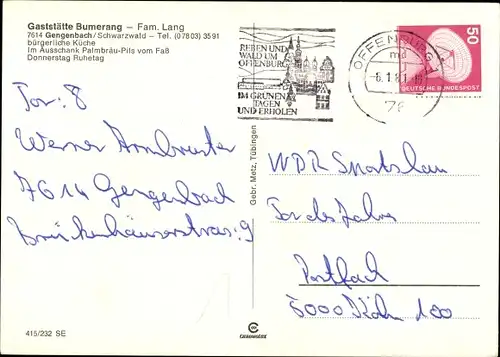 Gaststätte Bumerang – Fam. Lang
7614 Gengenbach/Schwarzwald – Tel. (07803) 3591
bürgerliche Küche
Im Ausschank Palmbräu-Pils vom Faß
Donnerstag Ruhetag
REBEN UND
WALD UM
OFFENBURG
IM GRÜNEN
TAGEN
UND ERHOLEN
OFFENBURG
md
-6.1.8
76
50
DEUTSCHE BUNDESPOST
Tor: 8
Werner Armbruster
7614 Gengenbach
Brückenhäuserstras: 9
Gebr. Metz, Tübingen
WDR Sportschau
Tor des Jahres
Postfach
5000 Köln 100
415/232 SE